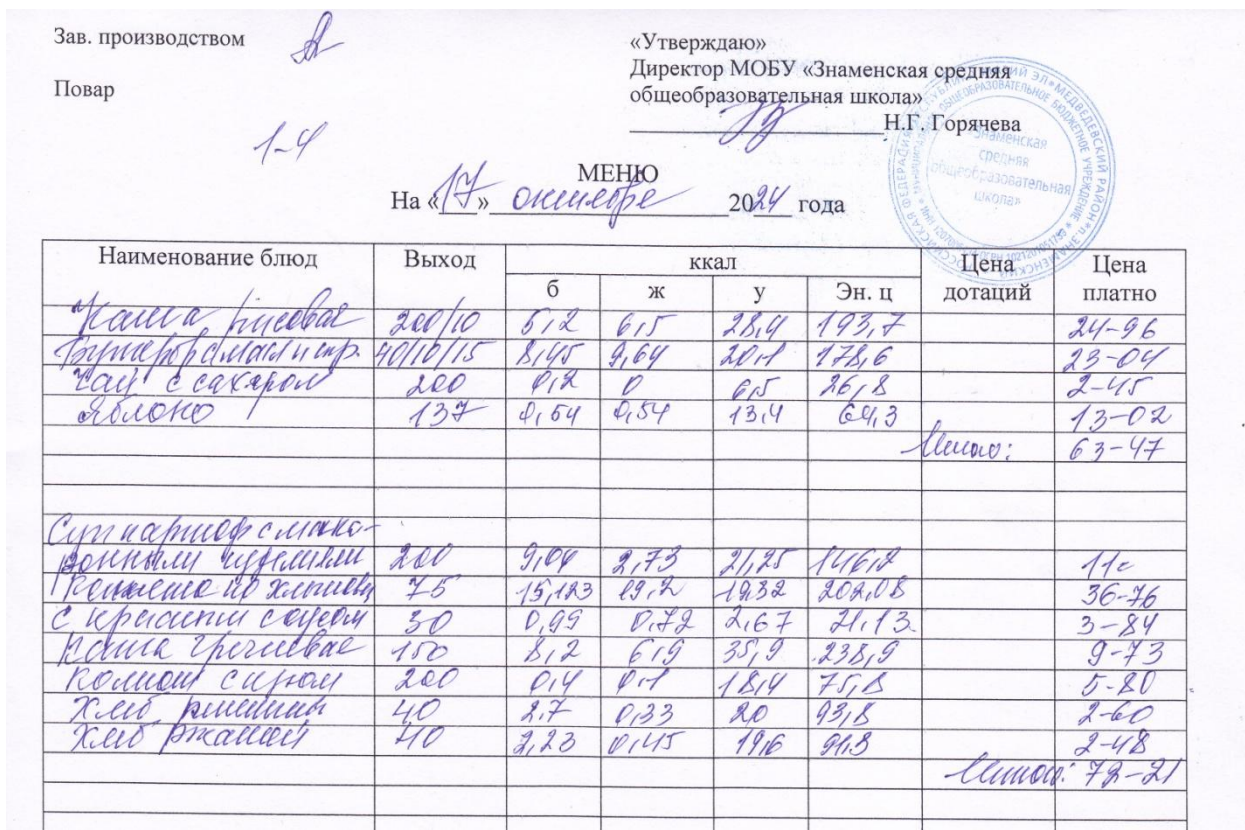 Зав. производством
«Утверждаю»
Директор МОБУ «Знаменская средняя
общеобразовательная школа»
Н.Г. Горячева
Повар
1-4
МЕНЮ
На «17» октября 2024 года
Наименование блюд Выход ккал Цена дотаций Цена платно
б ж у Эн. ц
Каша рисовая 200/10 5,2 6,5 28,4 193,7 24-96
Бутерброд с масл и сыр. 40/10/15 8,45 9,64 20,1 178,6 23-04
Чай с сахаром 200 0,2 0 6,5 26,8 2-45
Яблоко 137 0,54 0,54 13,4 64,3 13-02
Итого: 63-47
Суп картоф с мака-
ронными изделиями 200 9,04 2,73 21,25 146,2
75 15,123 19,2 202,08 36-76
с красным соусом 30 0,99 0,72 2,67 21,13 3-84
Каша гречневая 150 8,2 6,9 35,9 238,9 9-73
200 0,4 0,1 18,4 75,8 5-80
Хлеб пшенич 40 2,7 0,33 20 93,8 2-60
Хлеб ржаной 40 2,23 0,45 19,6 91,3 2-48
Итого: 72-21
Знаменская
средняя
общеобразовательная
школа»